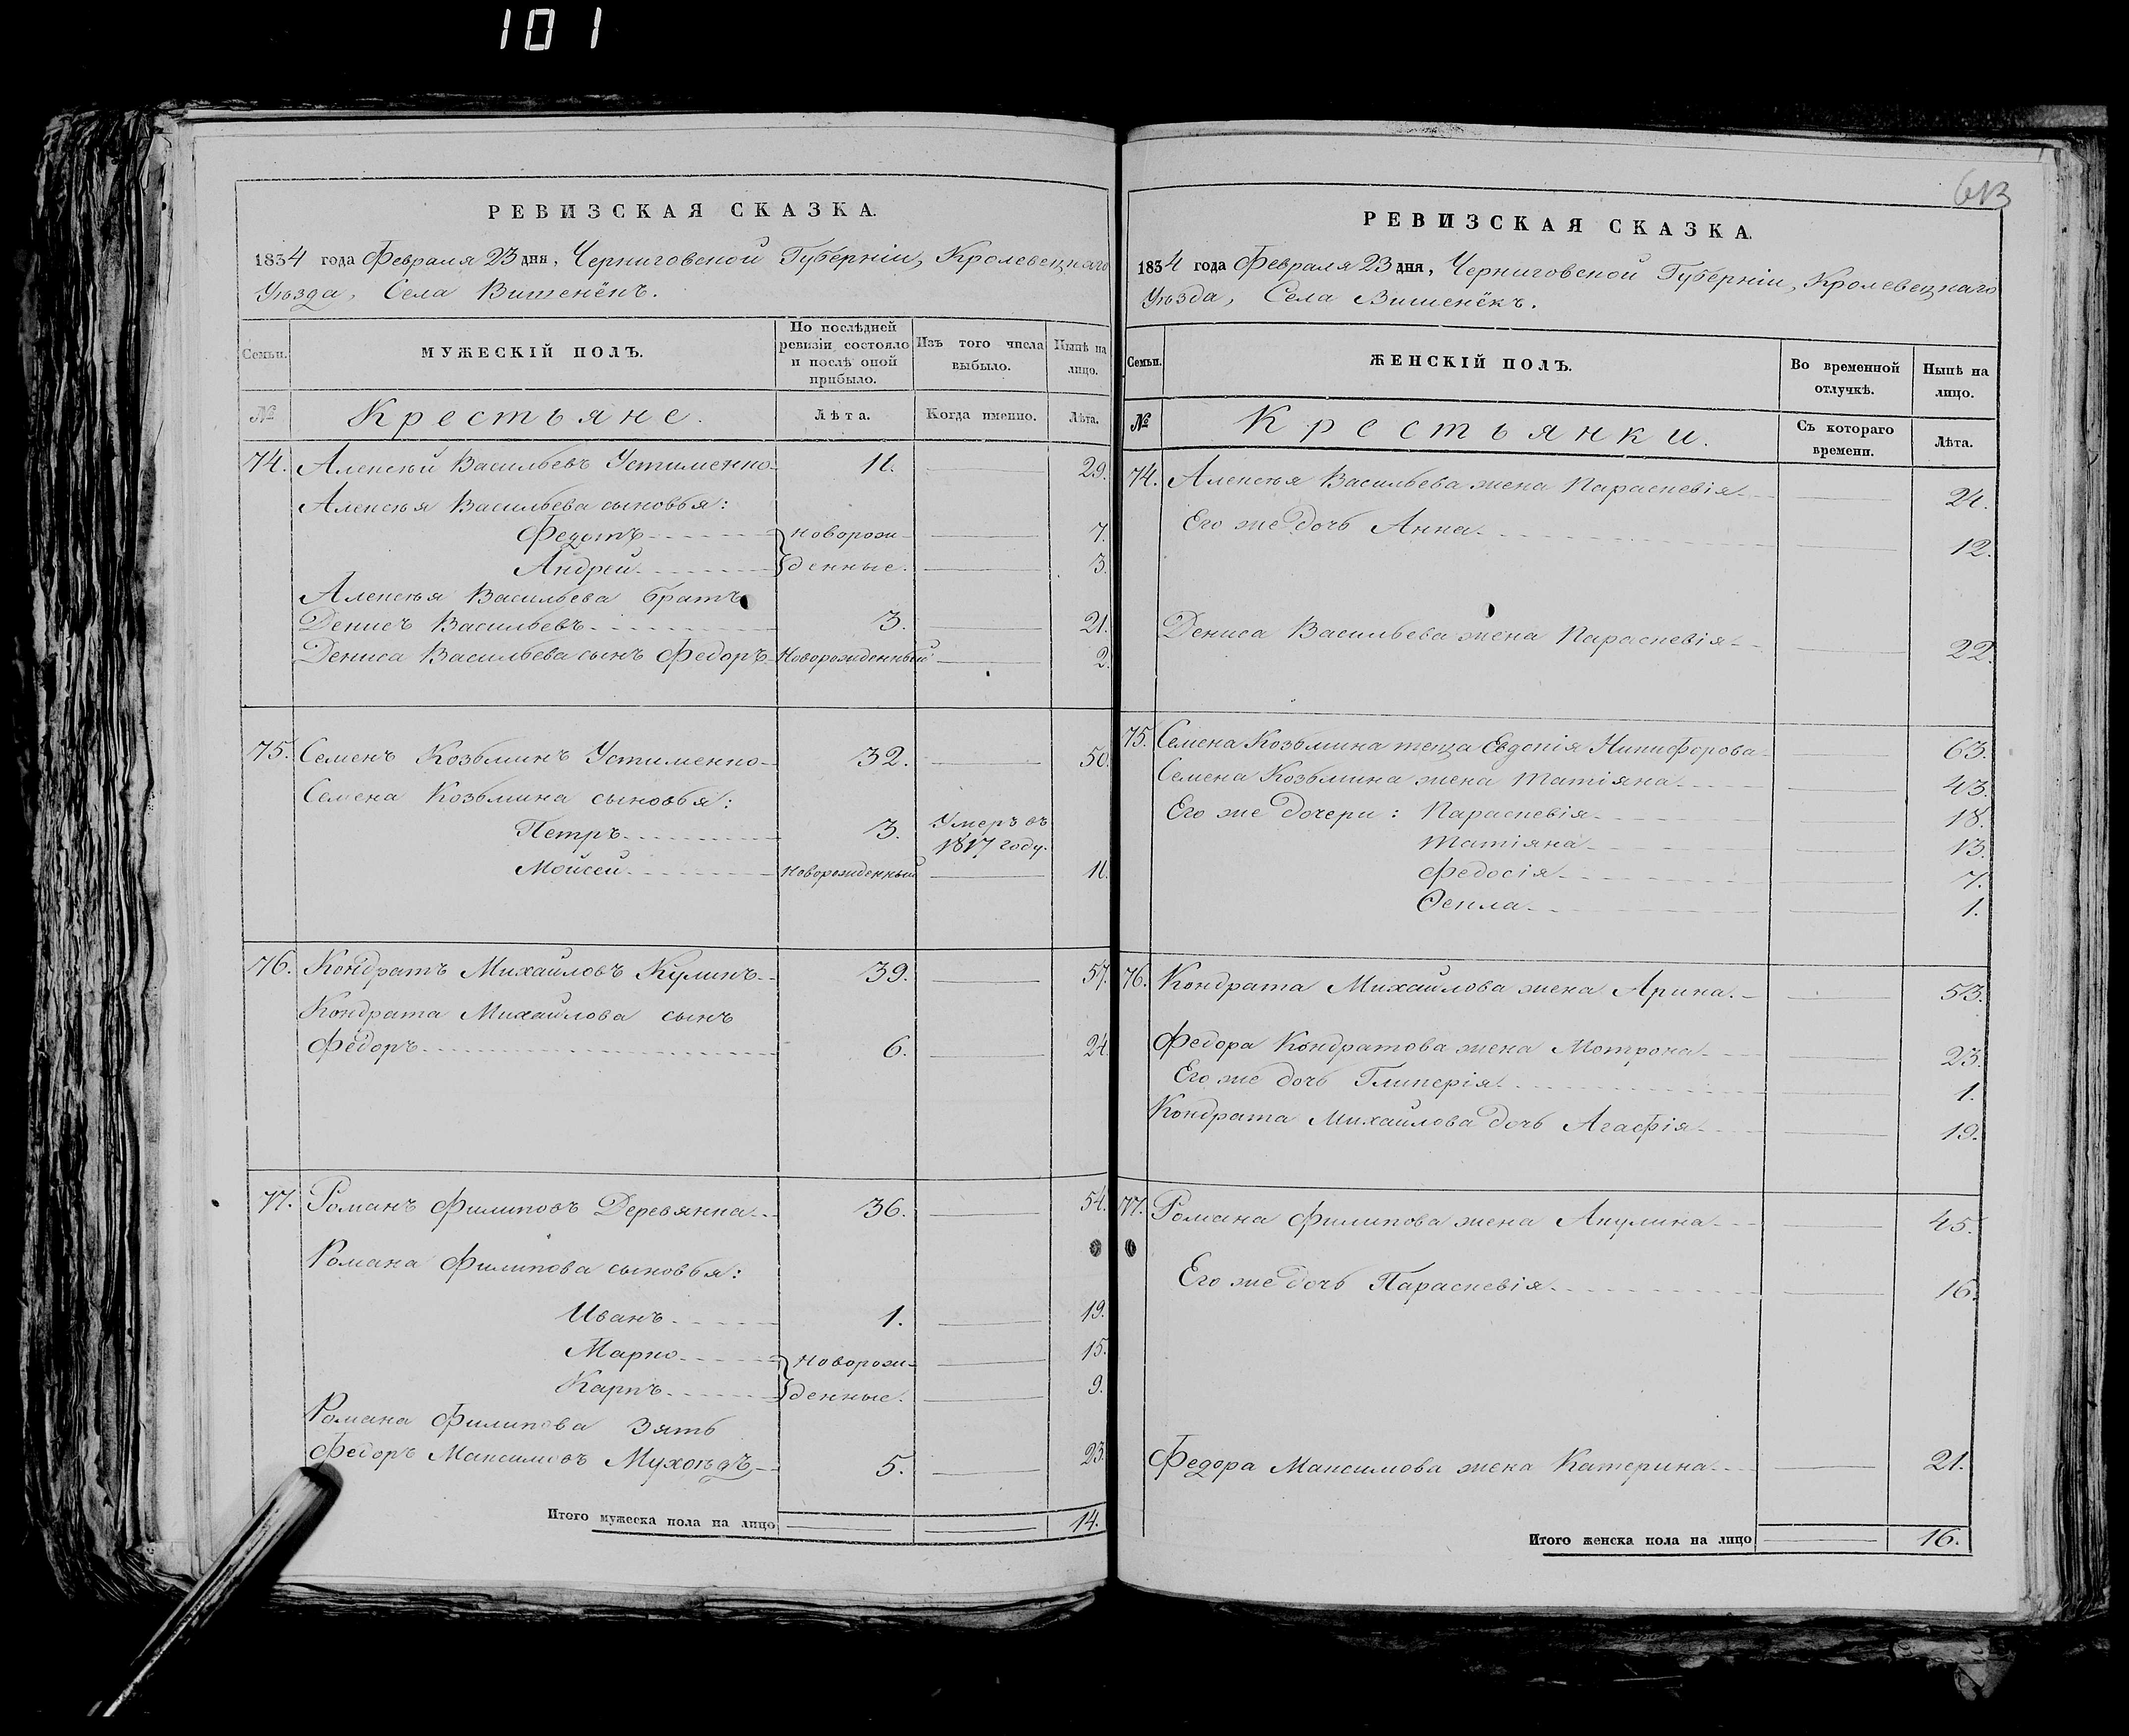 101
613
РЕВИЗСКАЯ СКАЗКА.
1834 года Февраля 23 дня, Черниговской Губерніи, Кролевецкаго
Уѣзда, Села Вишенёкъ.
Семьи.
МУЖЕСКІЙ ПОЛЪ.
По послѣдней ревизіи состояло и послѣ оной прибыло.
Изъ того числа выбыло.
Нынѣ на лицо.
№
Крестьяне.
Лѣта.
Когда именно.
Лѣта.
74. Алексѣй Васильевъ Устименко 11. 29.
Алексѣя Васильева сыновья:
Федотъ новорож- 7.
Андрей денные. 3.
Алексѣя Васильева братъ
Денисъ Васильевъ 3. 21.
Дениса Васильева сынъ Федоръ Новорожденный 2.
75. Семенъ Козьминъ Устименко 32. 50.
Семена Козьмина сыновья:
Петръ 3. Умеръ въ 1817 году.
Мойсей Новорожденный 11.
76. Кондратъ Михайловъ Куликъ 39. 57.
Кондрата Михайлова сынъ
Федоръ 6. 24.
77. Романъ Филиповъ Деревянка 36. 54.
Романа Филипова сыновья:
Иванъ 1. 19.
Марко новорож- 15.
Карпъ денные. 9.
Романа Филипова зять
Федоръ Максимовъ Мухоѣдъ 5. 23.
Итого мужеска пола на лицо 14.
РЕВИЗСКАЯ СКАЗКА.
1834 года Февраля 23 дня, Черниговской Губерніи, Кролевецкаго
Уѣзда, Села Вишенёкъ.
Семьи.
ЖЕНСКІЙ ПОЛЪ.
Во временной отлучкѣ.
Нынѣ на лицо.
№
Крестьянки.
Съ котораго времени.
Лѣта.
74. Алексѣя Васильева жена Параскевія 24.
Его же дочь Анна. 12.
Дениса Васильева жена Параскевія 22.
75. Семена Козьмина теща Евдокія Никифорова 63.
Семена Козьмина жена Матіяна 43.
Его же дочери: Параскевія 18.
Матіяна 13.
Федосія 7.
Фекла 1.
76. Кондрата Михайлова жена Арина. 53.
Федора Кондратова жена Мотрона 23.
Его же дочь Гликерія 1.
Кондрата Михайлова дочь Агафія 19.
77. Романа Филипова жена Акулина 45.
Его же дочь Параскевія 16.
Федора Максимова жена Катерина 21.
Итого женска пола на лицо 16.